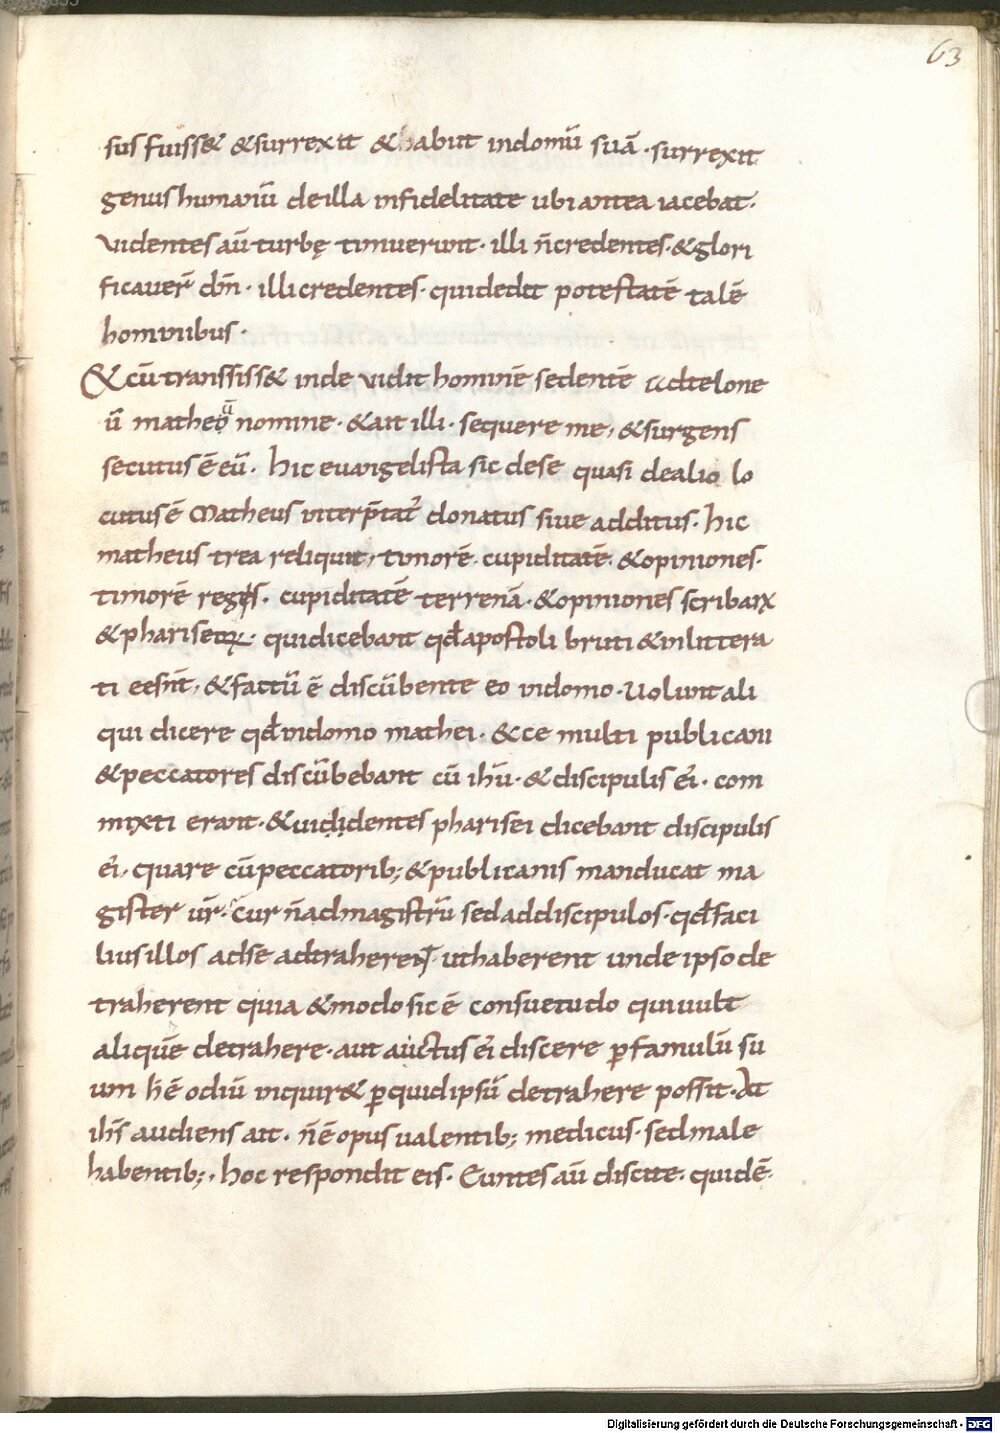 63
sus fuiss& & surrexit & habiit indomū suā · surrexit
genus humanū de illa infidelitate ubi antea iacebat ·
videntes aū turbę timuerunt · illi ñ credentes · & glori
ficauer̄ dn̄m · illi credentes · qui dedit potestatē talē
hominibus ·
& cū transsiss& inde vidit hominē sedentē ad telone
ū matheū nomine · & ait illi · sequere me, & surgens
secutus ē eū · hic evangelista sic de se quasi de alio lo
cutus ē Matheus interp̄tat̄ donatus sive additus · hic
matheus trea reliquit, timorē · cupiditatē · & opiniones ·
timorē regis · cupiditatē terrenā · & opiniones scribarꝝ
& phariseoꝝ · qui dicebant qđ apostoli bruti & inlittera
ti eēsnt, & factū ē discūbente eo in domo · Uolunt ali
qui dicere qđ in domo mathei · & ce multi publicani
& peccatores discūbebant cū ihū · & discipulis ei · com
mixti erant · & vididentes pharisei dicebant discipulis
ei, quare cū peccatorib; & publicanis manducat ma
gister ur̄ · Cur ñ ad magistrū sed ad discipulos · qđ faci
lius illos ad se adtraherent · ut haberent unde ipso de
traherent quia & modo sic ē consuetudo qui uult
aliquē detrahere · aut auctus ei discere ꝑ famulū su
um h̄ē odiū inquir& ꝑ quid ipsū detrahere possit · At
ih̄s audiens ait · ñ ē opus valentib; medicus · sed male
habentib; · hoc respondit eis · Euntes aū discite · quid ē ·
Digitalisierung gefördert durch die Deutsche Forschungsgemeinschaft - DFG